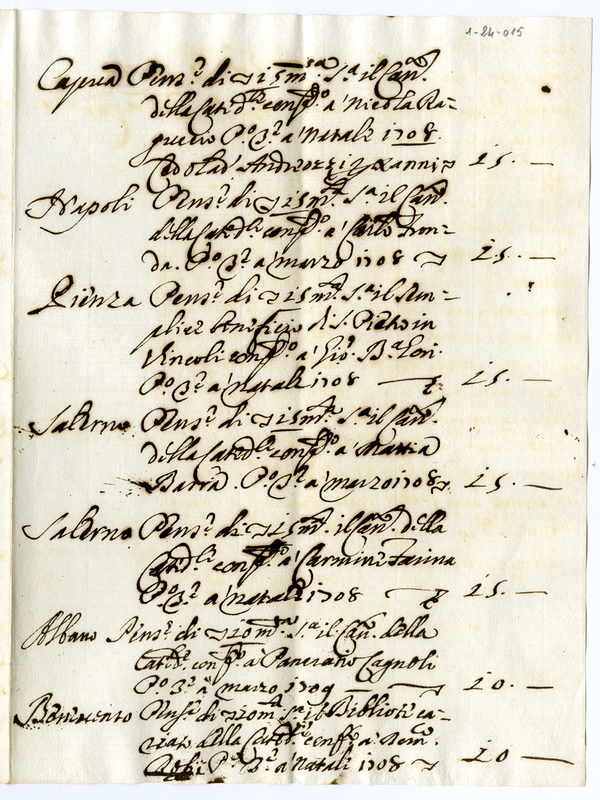 1-24-015
Caprea Pens.e di 15 m.ta S.a il Can.
della Cated.le conf.o a Nicola Ra-
P.o 3.o a Natale 1708.
25. —
Napoli Pens.e di 15 m.ta S.a il Can.
della Cated.le conf.o a Carlo Fron-
da. P.o 3.o a marzo 1708 25. —
Pienza Pens.e di 15 m.ta S.a il Sem-
plice beneficio di S. Pietro in
Vincoli conf.o a Gio. Ba. Lori.
P.o 3.o a natale 1708 25. —
Salerno Pens.e di 15 m.ta S.a il Can.
della Cated.le conf.o a Mattia
Barra. P.o 3.o a marzo 1708 25. —
Salerno Pens.e di 15 m.ta il Can. della
Cated.le conf.o a Carmine Farina
P.o 3.o a natale 1708 25. —
Albano Pens.e di 20 m.ta S.a il Can. della
Cated. conf.o a Pancrazio Cagnoli
P.o 3.o a marzo 1709 20. —
Benevento Pens.e di 20 m.ta S.a il Biblioteca-
riato della Cated.le conf.o a Dom.o
P.o 3.o a Natale 1708 20 —